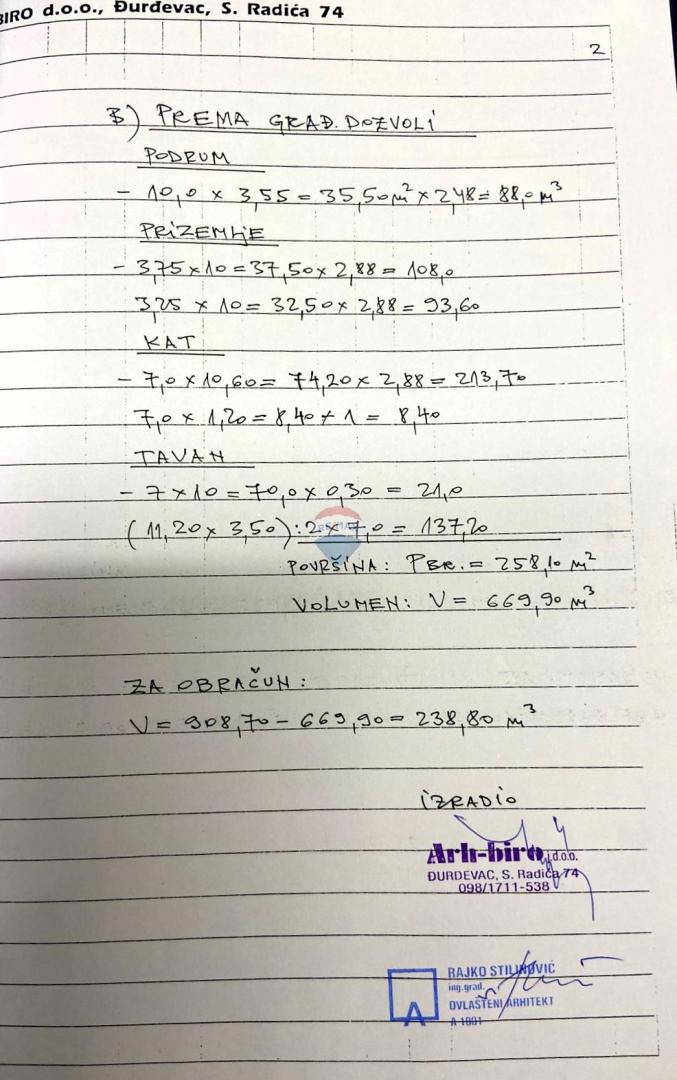 BIRO d.o.o., Đurđevac, S. Radića 74
2
B) PREMA GRAĐ. DOZVOLI
PODRUM
- 10,0 × 3,55 = 35,50 m² × 2,48 = 88,0 m³
PRIZEMLJE
- 3,75 × 10 = 37,50 × 2,88 = 108,0
3,25 × 10 = 32,50 × 2,88 = 93,60
KAT
- 7,0 × 10,60 = 74,20 × 2,88 = 213,70
7,0 × 1,20 = 8,40 × 1 = 8,40
TAVAN
- 7 × 10 = 70,0 × 0,30 = 21,0
(11,20 × 3,50) : 2 × 7,0 = 137,20
RE/MAX
POVRŠINA: PBR. = 258,10 m²
VOLUMEN: V = 669,90 m³
ZA OBRAČUN:
V = 908,70 - 669,90 = 238,80 m³
IZRADIO
Arh-biro j.d.o.o.
ĐURĐEVAC, S. Radića 74
098/1711-538
RAJKO STILINOVIĆ
ing.građ.
OVLAŠTENI ARHITEKT
A